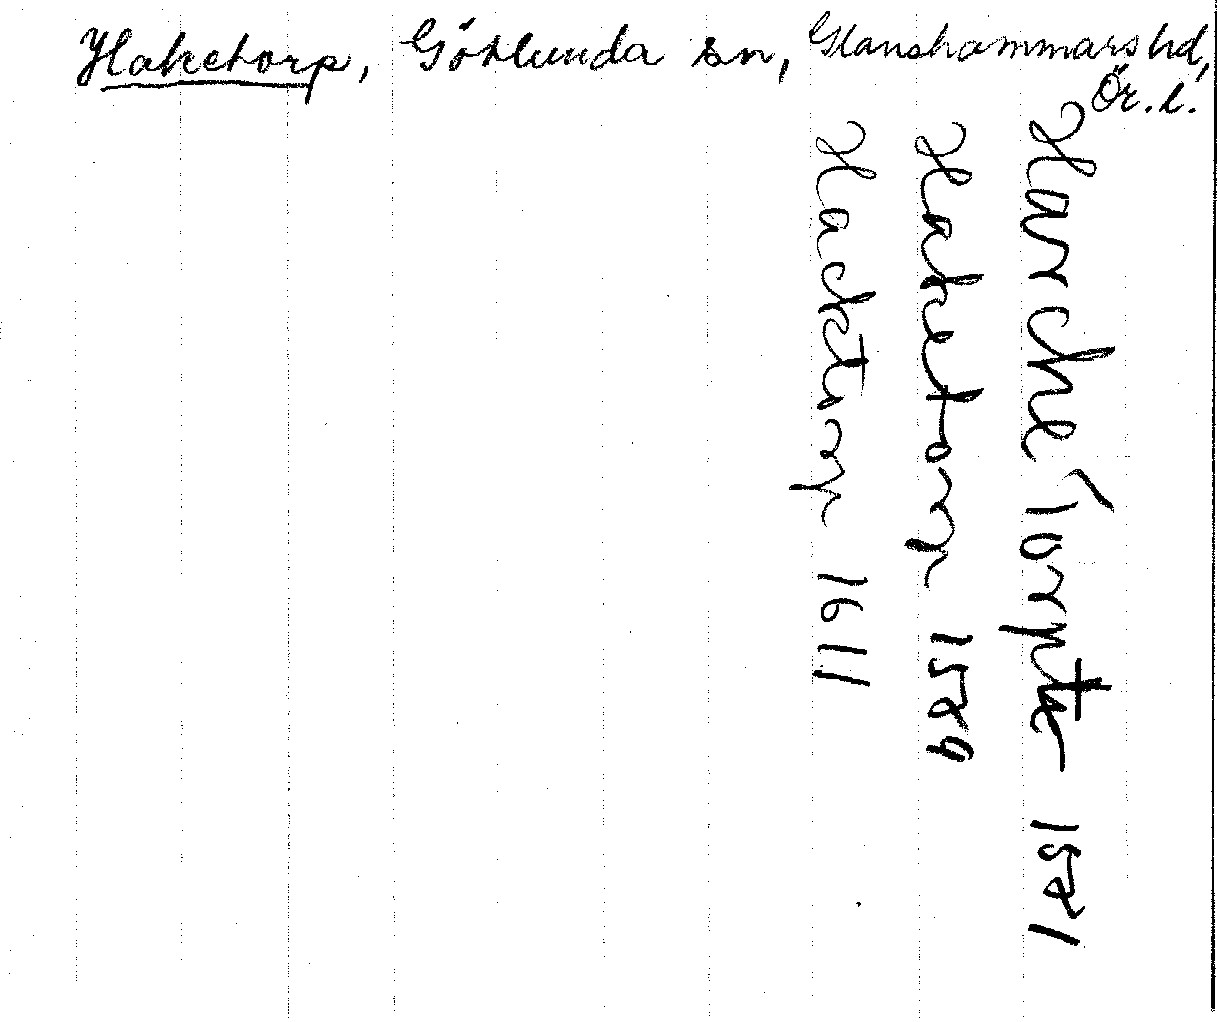 Haketorp, Götlunda sn, Glanshammars hd,
Ör. l.
Harche Torpt 1581
Haketorp 1589
Hacktorp 1611